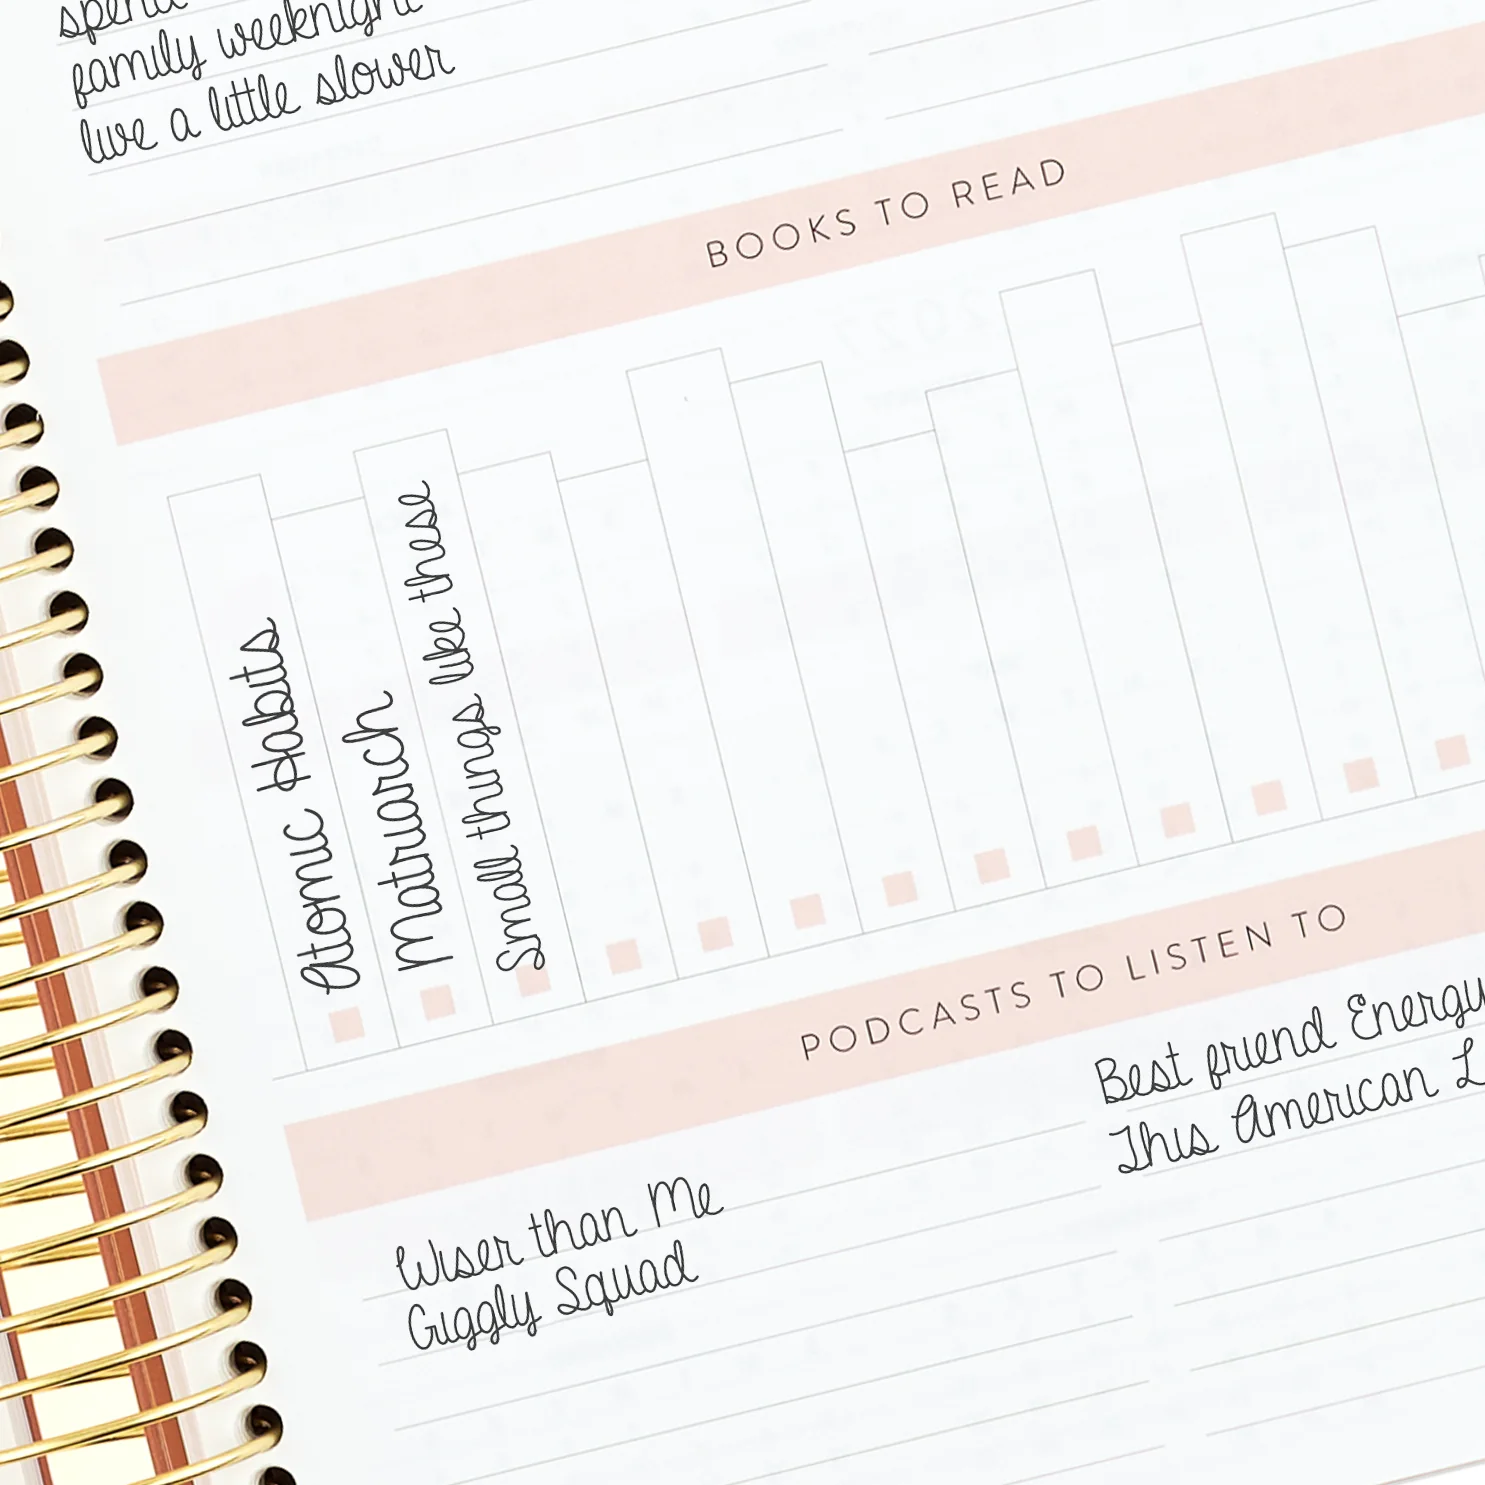 family weeknight
live a little slower
BOOKS TO READ
Atomic Habits
Matriarch
Small things like these
PODCASTS TO LISTEN TO
Wiser than Me
Giggly Squad
Best friend Energy
This American